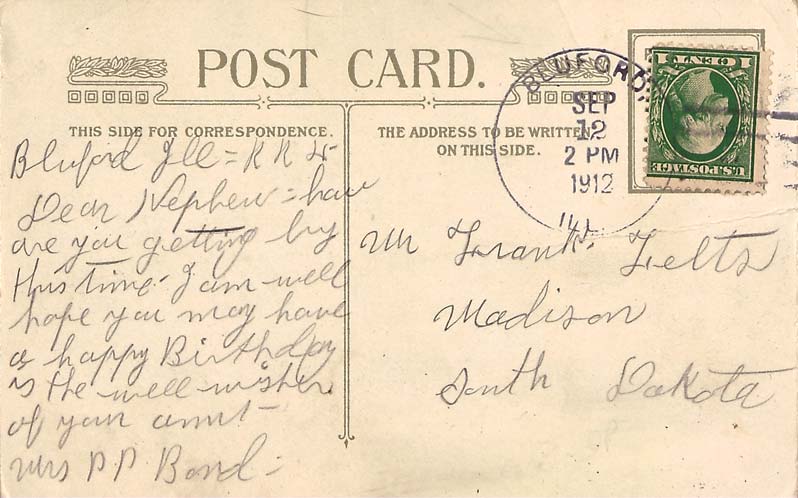 POST CARD.
THIS SIDE FOR CORRESPONDENCE.
THE ADDRESS TO BE WRITTEN
ON THIS SIDE.
BLUFORD
SEP
12
2 PM
1912
ILL
1 CENT 1
U.S. POSTAGE
Bluford Ill = R R
Dear Nephew = how
are you getting by
this time - I am well
hope you may have
a happy Birthday
is the well wisher
of your aunt -
Mrs P P Bond -
Mr Frank Felts
Madison
South Dakota